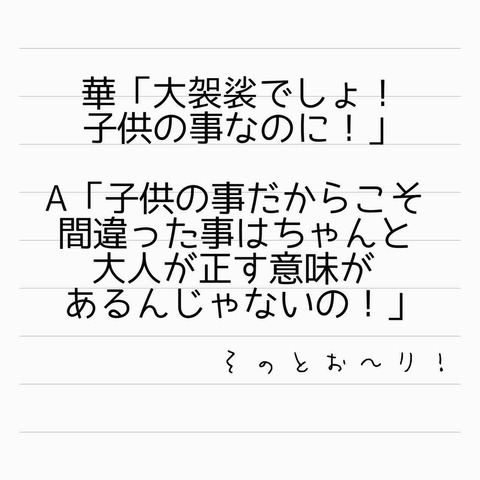 華「大袈裟でしょ！
子供の事なのに！」
A「子供の事だからこそ
間違った事はちゃんと
大人が正す意味が
あるんじゃないの！」
そのとお〜り！